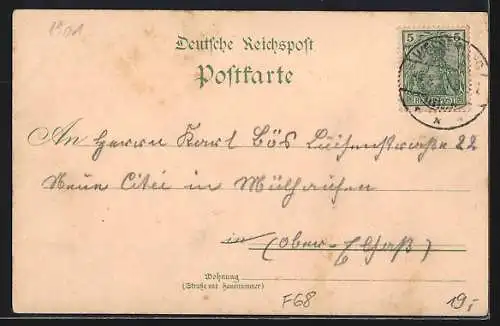 1901
Deutsche Reichspost
Postkarte
5 5
An Herrn Karl Bös Luisenstraße 22
Neue Citei in Mülhausen
in (Ober-Elsaß)
Wohnung
(Straße und Hausnummer)
F68
19,-